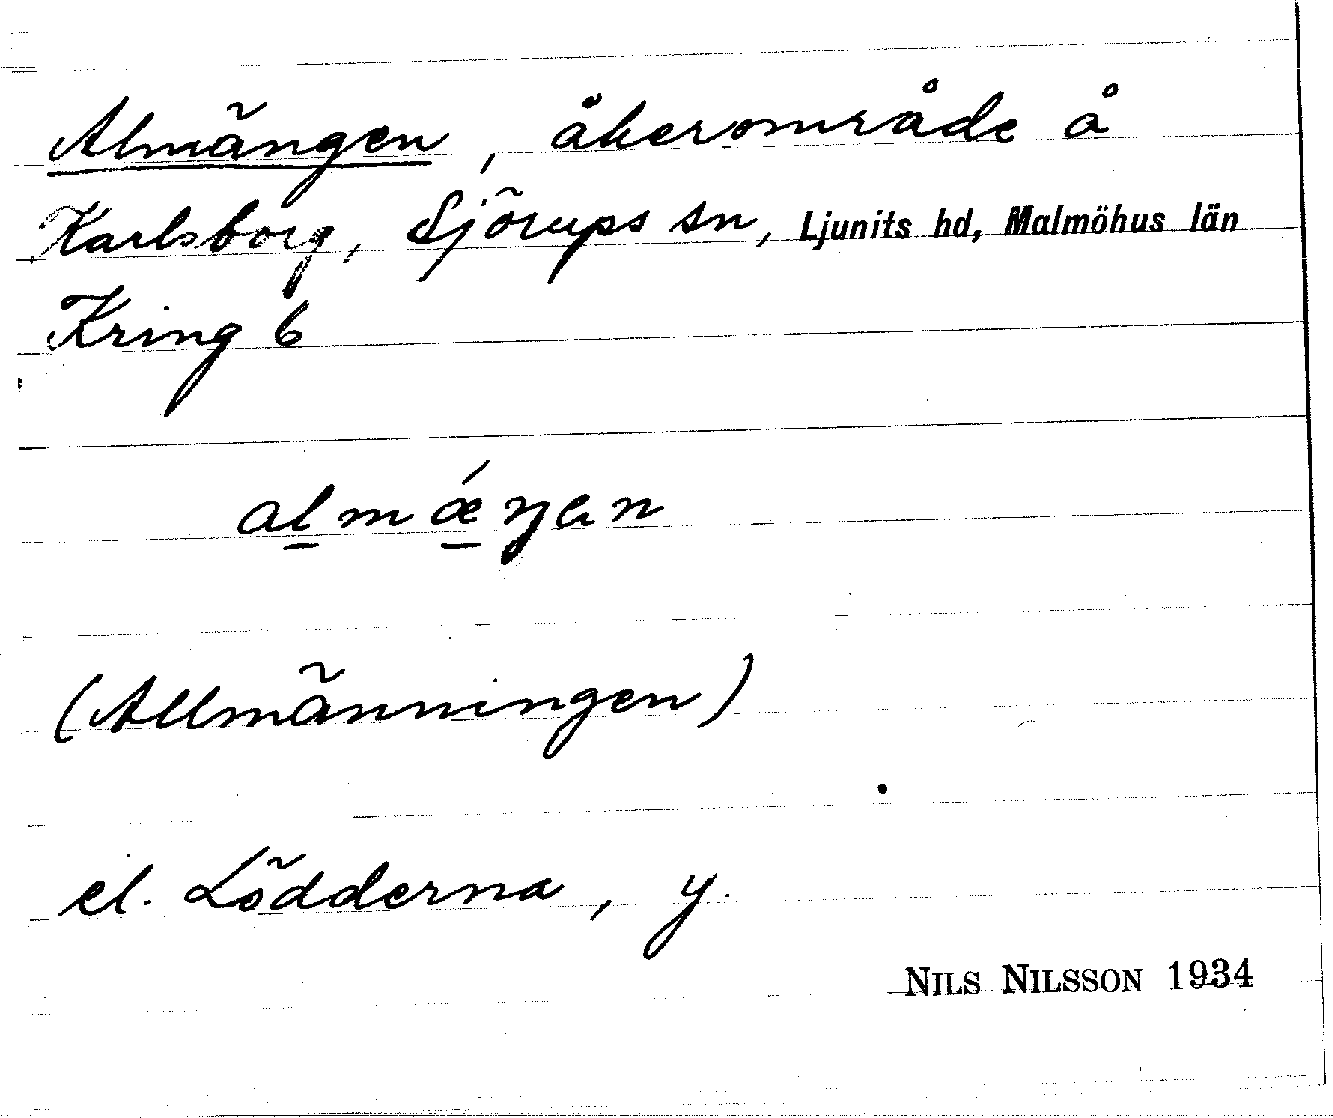 Almängen, åkerområde å
Karlsborg, Sjörups sn, Ljunits hd, Malmöhus län
Kring 6
almǽŋen
(Allmänningen)
el. Lödderna, y.
NILS NILSSON 1934